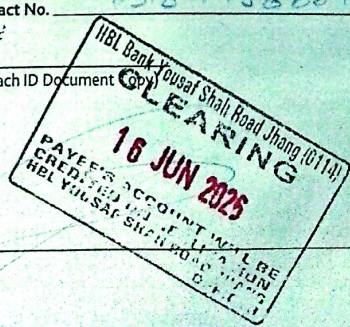 act No.
ach ID Document Copy)
HBL Bank Yousaf Shah Road Jhang (0114)
CLEARING
16 JUN 2025
PAYEE'S ACCOUNT WILL BE
CREDITED
HBL YOUSAF SHAH ROAD JHANG